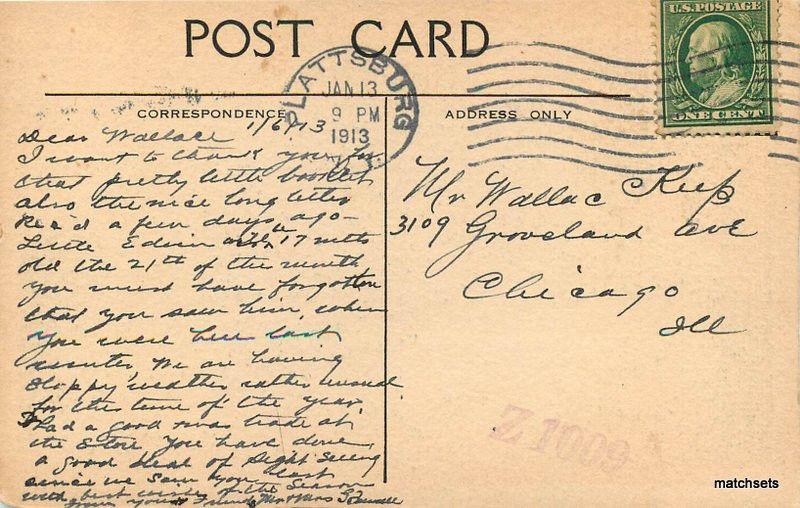 POST CARD
PLATTSBURG
JAN 13
9 PM
1913
U.S. POSTAGE
ONE CENT
CORRESPONDENCE
ADDRESS ONLY
1/6/13
Dear Wallace
I want to thank you for
that pretty little booklet
also the nice long letter
Rec'd a few days ago—
Little Edwin will be 17 mths
old the 21st of the month
you must have forgotten
that you saw him, when
you were here last
winter, We are having
sloppy weather rather unusual
for the time of the year,
Had a good xmas trade at
the Store, You have done
a good deal of sight seeing
since we saw you last
with best wishes of the Season
from your Friends Mr & Mrs
Mr Wallac Keep
3109 Groveland ave
Chicago
Ill
Z1009
matchsets